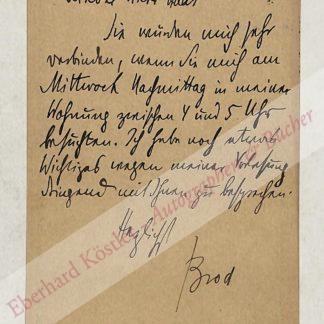 Sie würden mich sehr
verbinden, wenn Sie mich am
Mittwoch Nachmittag in meiner
Wohnung zwischen 4 und 5 Uhr
besuchten. Ich habe noch etwas
Wichtiges wegen meiner Vorlesung
dringend mit Ihnen zu besprechen.
Herzlichst
Brod
Eberhard Köstler Autographen & Bücher